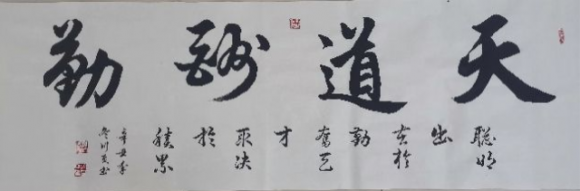 天道酬勤
聪明出在於勤奋天才取决於積累
辛丑年